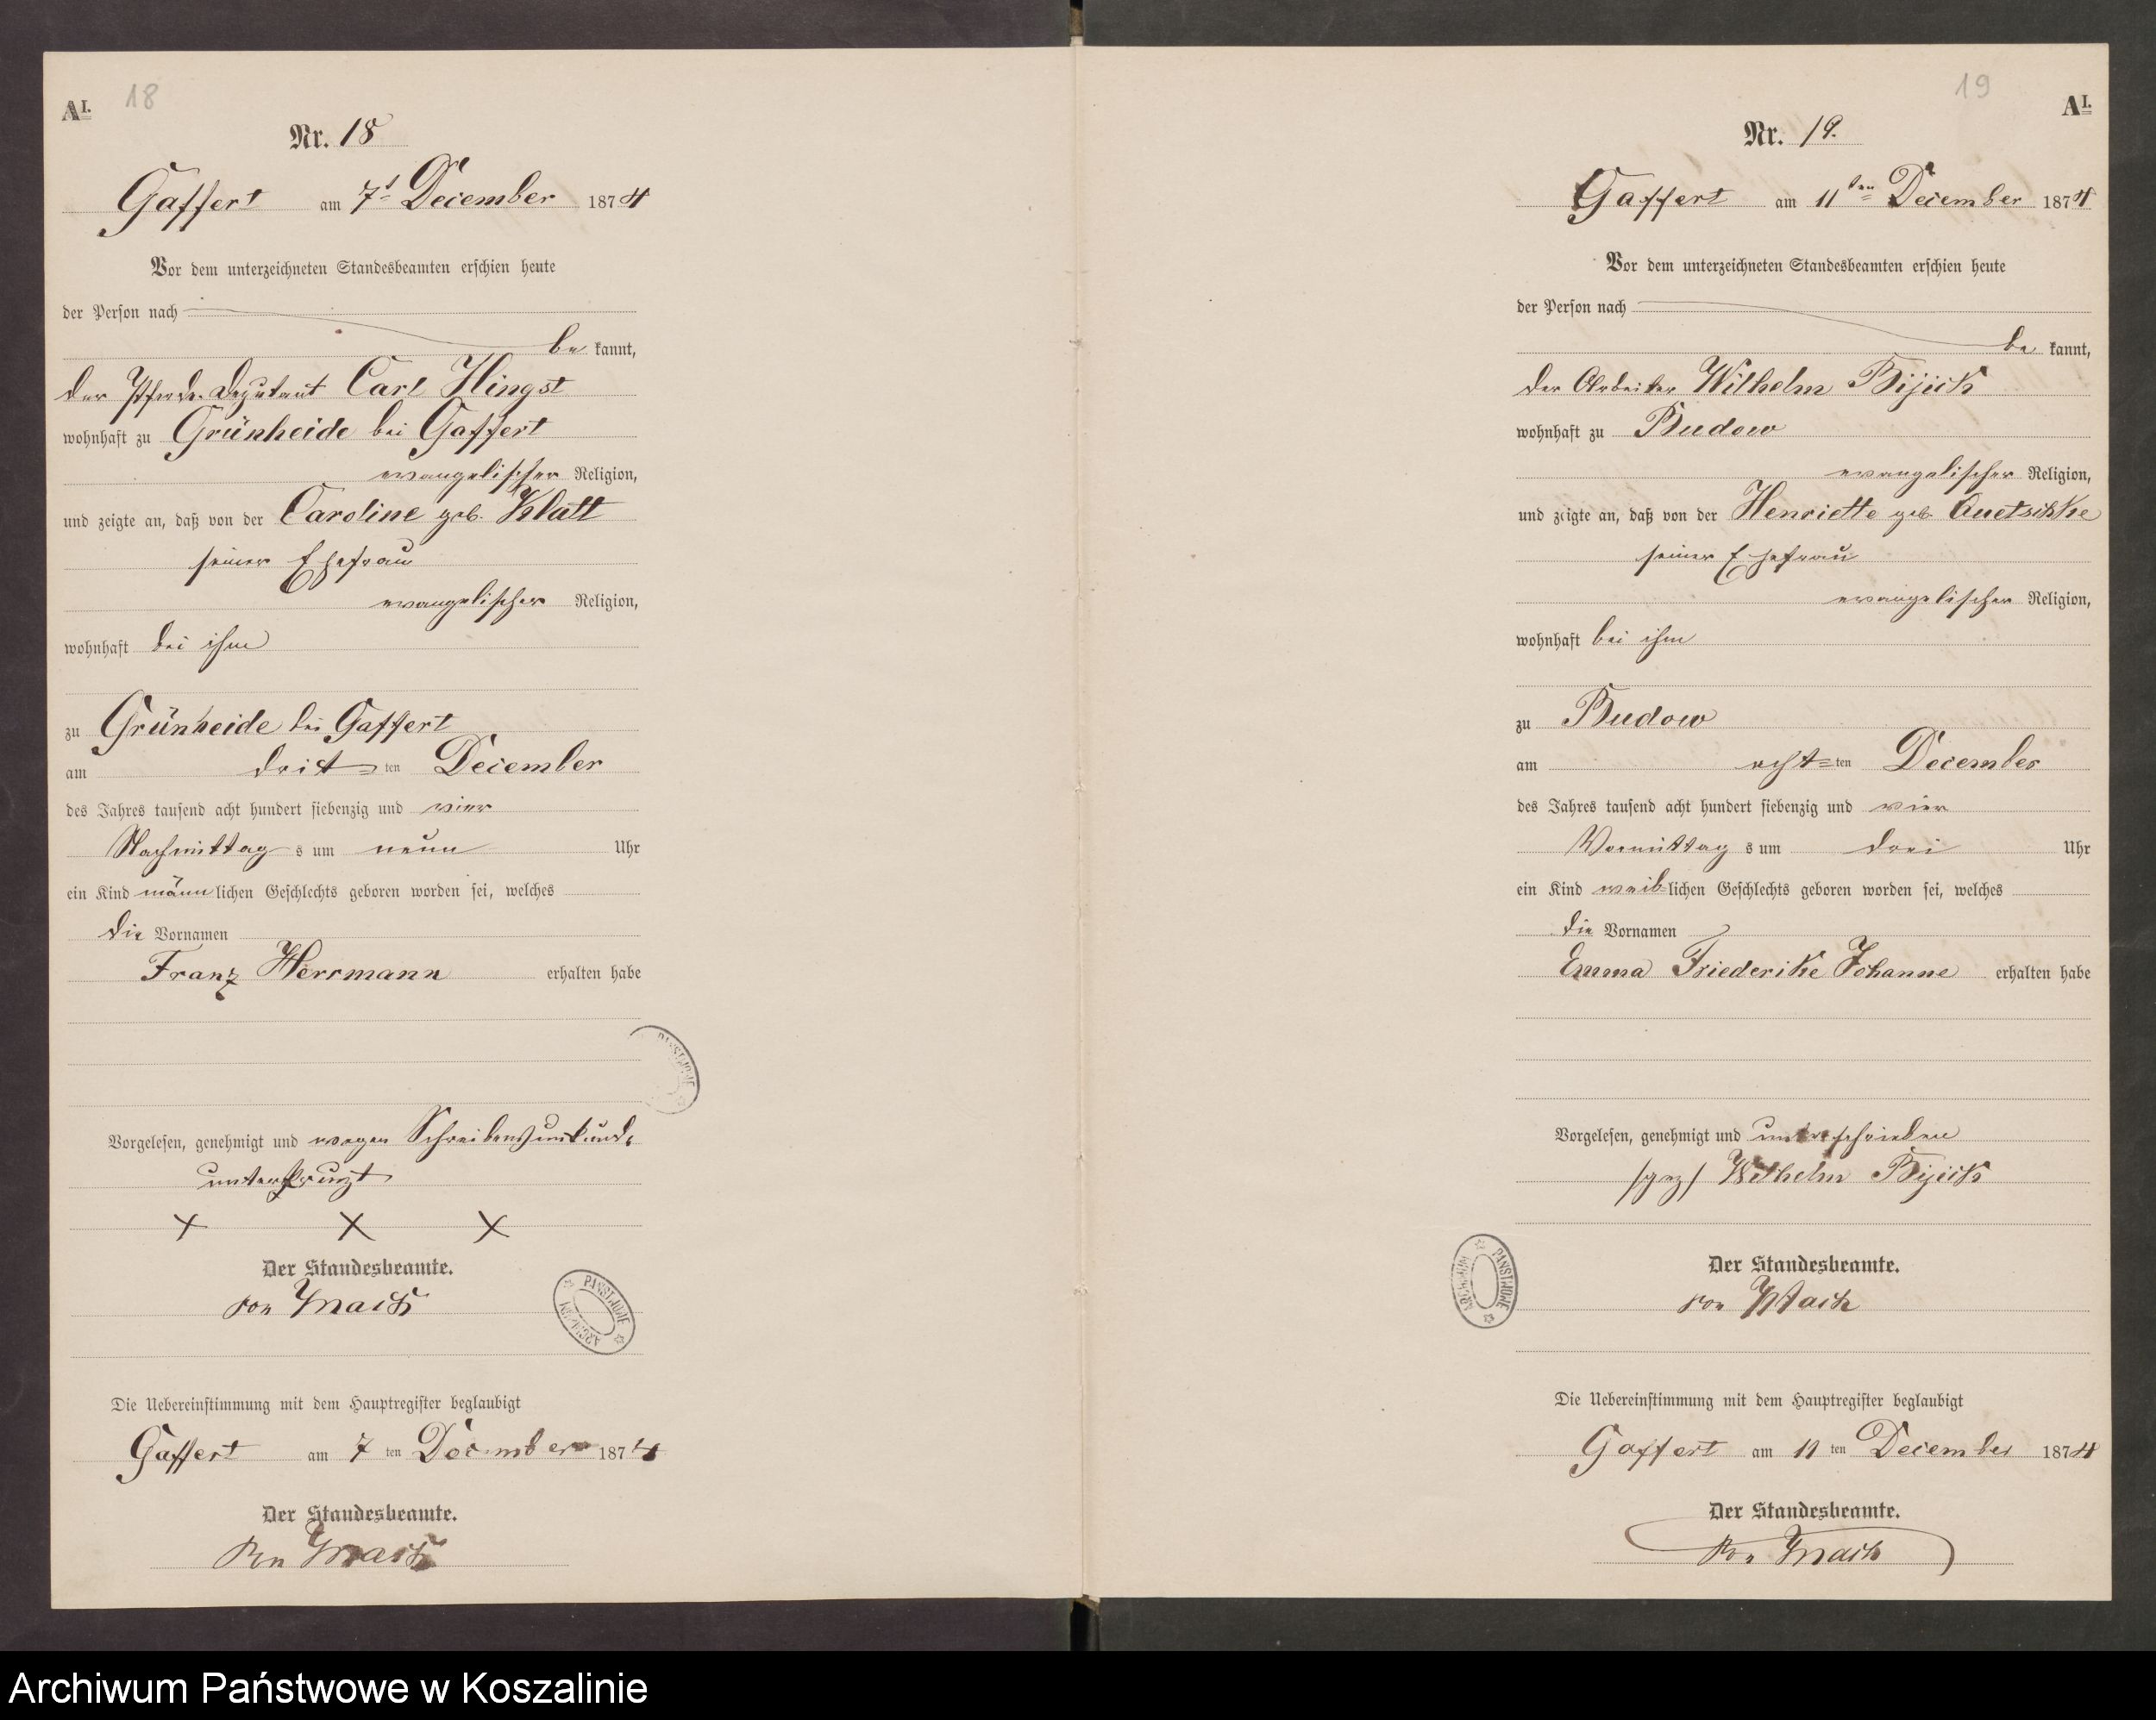 AI.
18
Nr. 18
Gaffert am 7t December 1874
Vor dem unterzeichneten Standesbeamten erschien heute
der Person nach
be kannt,
der Pferde-Deputant Carl Hingst
wohnhaft zu Grünheide bei Gaffert
evangelischer Religion,
und zeigte an, daß von der Caroline geb. Klatt
seiner Ehefrau
evangelischer Religion,
wohnhaft bei ihm
zu Grünheide bei Gaffert
am dritten December
des Jahres tausend acht hundert siebenzig und vier
Nachmittags um neun Uhr
ein Kind männlichen Geschlechts geboren worden sei, welches
die Vornamen
Franz Herrmann erhalten habe
Vorgelesen, genehmigt und wegen Schreibensunkunde
unterkreuzt
X X X
Der Standesbeamte.
von Mach
Die Uebereinstimmung mit dem Hauptregister beglaubigt
Gaffert am 7 ten December 1874
Der Standesbeamte.
Von Mach
ARCHIWUM PAŃSTWOWE
19
AI.
Nr. 19.
Gaffert am 11ten December 1874
Vor dem unterzeichneten Standesbeamten erschien heute
der Person nach
be kannt,
der Arbeiter Wilhelm
wohnhaft zu Budow
evangelischer Religion,
und zeigte an, daß von der Henriette geb.
seiner Ehefrau
evangelischer Religion,
wohnhaft bei ihm
zu Budow
am achten December
des Jahres tausend acht hundert siebenzig und vier
Vormittags um drei Uhr
ein Kind weiblichen Geschlechts geboren worden sei, welches
die Vornamen
Emma Friederike Johanne erhalten habe
Vorgelesen, genehmigt und unterschrieben
/gez/ Wilhelm
Der Standesbeamte.
von Mach
Die Uebereinstimmung mit dem Hauptregister beglaubigt
Gaffert am 11 ten December 1874
Der Standesbeamte.
Von Mach
ARCHIWUM PAŃSTWOWE
Archiwum Państwowe w Koszalinie